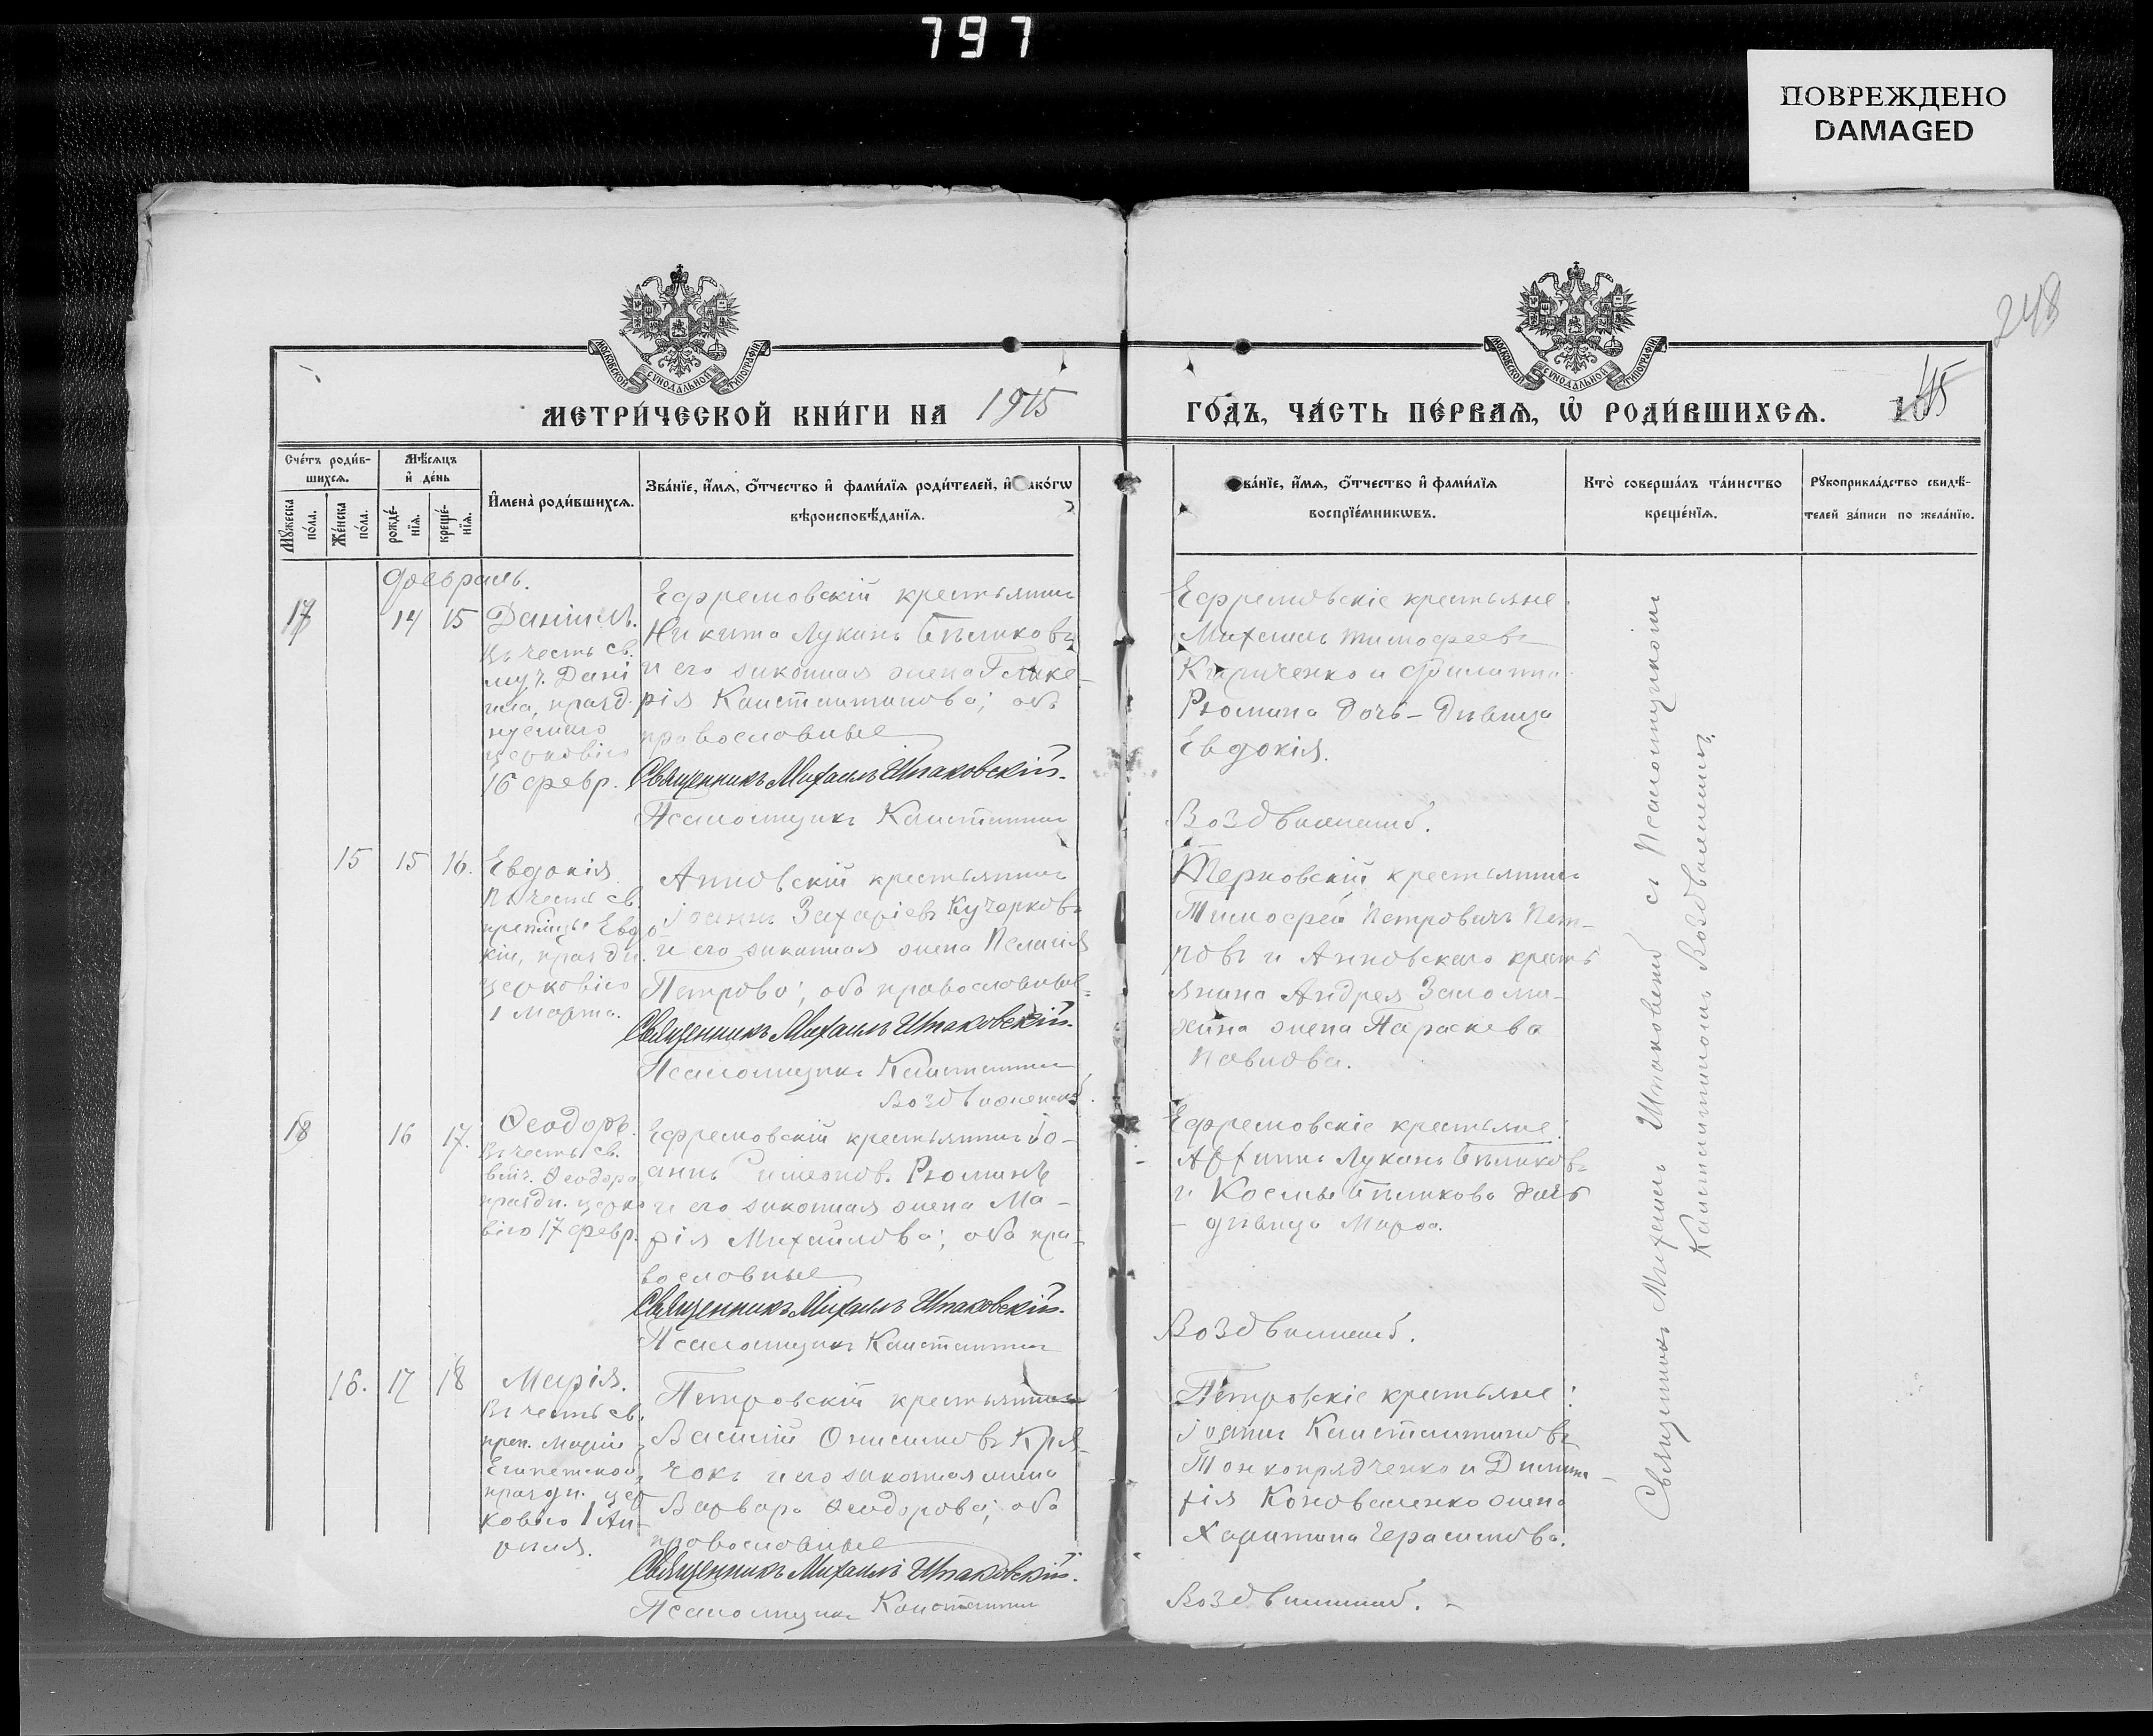 797
ПОВРЕЖДЕНО
DAMAGED
248
МОСКОВСКОЙ СѴНОДАЛЬНОЙ ТИПОГРАФІИ
МОСКОВСКОЙ СѴНОДАЛЬНОЙ ТИПОГРАФІИ
МЕТРИ́ЧЕСКОЙ КНИ́ГИ НА 1915
ГО́ДЪ, ЧА́СТЬ ПЕ́РВАѦ, Ѡ҆ РОДИ́ВШИХСѦ.
Сче́тъ роди́в-
шихсѧ.
Мѹ́жеска по́ла.
Же́нска по́ла.
Мѣ́сѧцъ
и҆ де́нь
рожде́-
нїѧ.
креще́-
нїѧ.
И҆мена̀ роди́вшихсѧ.
Зва́нїе, и҆́мѧ, о҆́тчество и҆ фами́лїѧ роди́телей, и҆ ако́гѡ
вѣроисповѣ́данїѧ.
ва́нїе, и҆́мѧ, о҆́тчество и҆ фами́лїѧ
воспрїе́мникѡвъ.
Кто̀ соверша́лъ та́инство
креще́нїѧ.
Рѹкоприкла́дство свидѣ́-
телей за́писи по жела́нїю.
Февраль.
17 14 15 Даніилъ.
Въ честь св.
муч. Дані
ила, празд.
16 февр.
Ефремовскій крестьянинъ
Никита Лукинъ Бѣликовъ
и его законная жена Глике-
рія Константинова; оба
православные
Священникъ Михаилъ Шпаковскій.
Псаломщикъ Константинъ
Ефремовскіе крестьяне:
Михаилъ Тимофеевъ
Кириченко и Филиппа
Рюмина дочь – дѣвица
Евдокія.
Воздвиженскій.
15 15 16. Евдокія
Въ честь св.
препмцы Евдо
кіи, праздн.
церковію
1 Марта.
Анновскій крестьянинъ
Іоаннъ Захаріевъ Кучерковъ
и его законная жена Пелагія
Петрова; оба православные
Священникъ Михаилъ Шпаковскій.
Псаломщикъ Константинъ
Воздвиженскій.
Терновскій крестьянинъ
Тимофей Петровичъ Пет-
ровъ и Анновскаго кресть
янина Андрея
жена Параскева
Павлова.
18 16 17. Ѳеодоръ.
Въ честь св.
вмч. Ѳеодора
праздн. церко
вію 17 февр.
Ефремовскій крестьянинъ Іо-
аннъ Симеоновъ Рюминъ
и его законная жена Ма-
рія Михайлова; оба пра-
вославные
Священникъ Михаилъ Шпаковскій.
Псаломщикъ Константинъ
Ефремовскіе крестьяне:
Лукинъ Бѣликовъ
и Космы Бѣликова дочь
– дѣвица Марѳа.
Воздвиженскій.
16. 17 18 Марія.
Въ честь св.
преп. Маріи
Египетской,
праздн. цер
ковію 1 Ап-
рѣля.
Петровскій крестьянинъ
Василій Онисимовъ Кря-
чокъ и его законная жена
Варвара Ѳеодорова; оба
православные
Священникъ Михаилъ Шпаковскій.
Псаломщикъ Константинъ
Петровскіе крестьяне:
Іоаннъ Константиновъ
Тонкопрядченко и Димит-
рія Коноваленко жена
Харитина Герасимова.
Воздвиженскій.
Священникъ Михаилъ Шпаковскій съ Псаломщикомъ
Константиномъ Воздвиженскимъ.